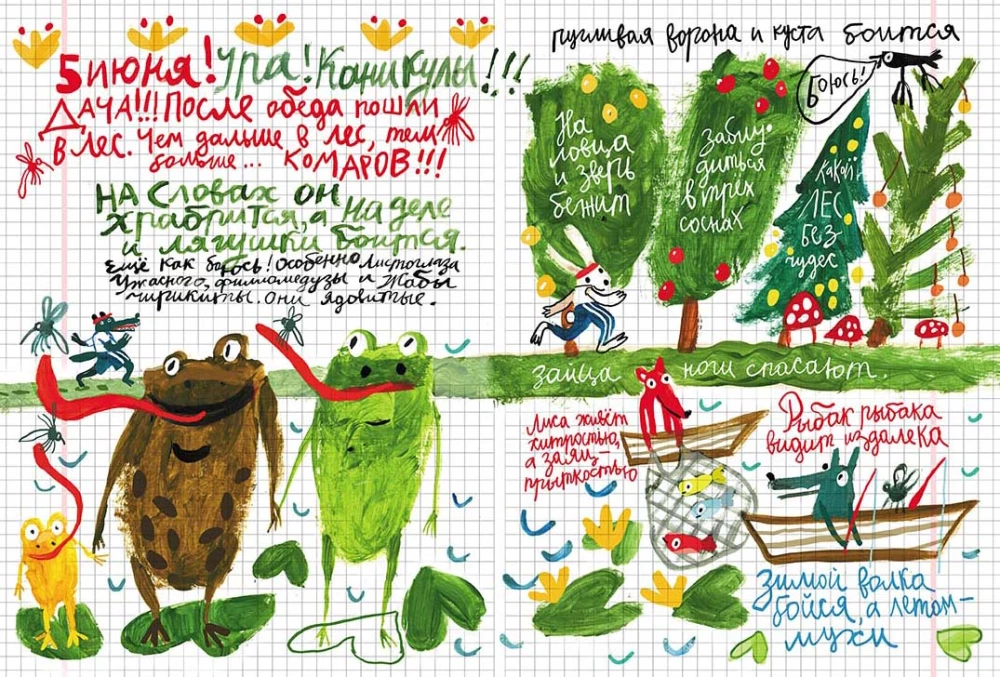 5 июня! Ура! Каникулы!!!
ДАЧА!!! После обеда пошли
в лес. Чем дальше в лес, тем
больше... КОМАРОВ!!!
НА СЛОВАХ ОН
храбрится, а на деле
и лягушки боится.
Ещё как боюсь! Особенно Листоглаза
Ужасного, филломедузы и Жабы
чирикиты. они ядовитые.
пугливая ворона и куста боится
Боюсь!
На
ловца
и зверь
бежит
Заблу-
диться
в трёх
соснах
какой
ЛЕС
БЕЗ
чудес
зайца ноги спасают.
Лиса живёт
хитростью,
а заяц-
прыткостью
Рыбак рыбака
видит издалека
Зимой волка
бойся, а летом-
мухи